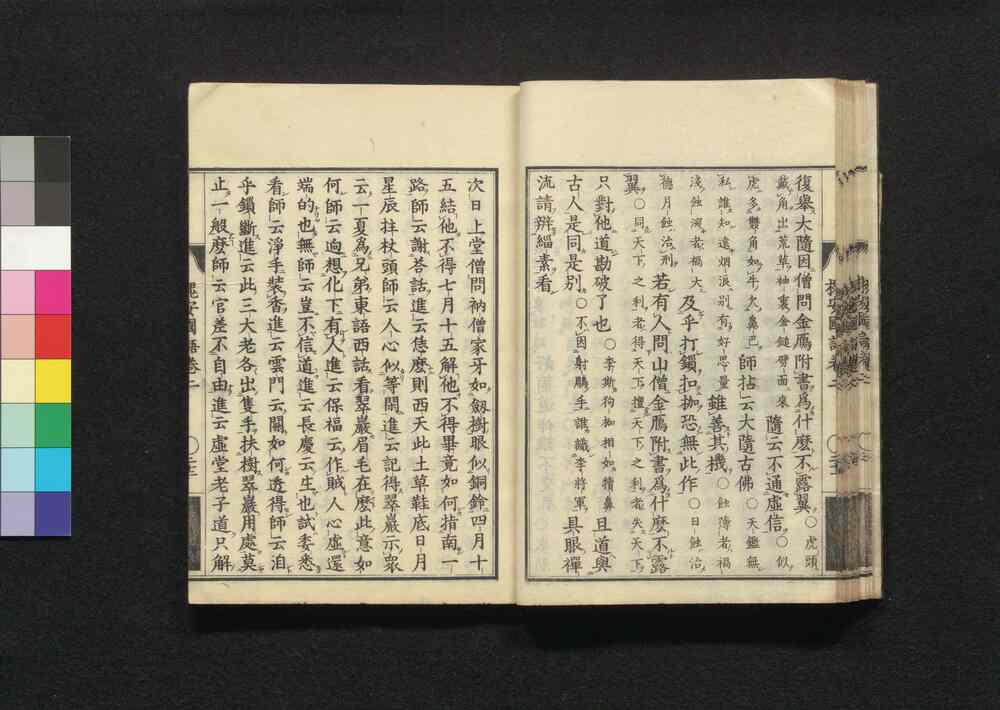 復擧大隨因僧問金鴈附書爲什麽不露翼○虎頭
戴角出荒草袖裏金鎚劈面來隨云不通虛信○似
虎多雙角如牛欠鼻巴師拈云大隨古佛○天鑑無
私誰知遠烟浪別有好思量錐善其機○蝕薄者禍
淺蝕深者禍大及乎打鎖扣枷恐無此作○日蝕治
德月蝕治刑若有人問山僧金鴈附書爲什麽不露
翼○同天下之利者得天下擅天下之利者失天下
只對他道勘破了也○李斯狗枷相如犢鼻且道與
古人是同是別○不因射鵰手誰識李將軍具眼禪
流請辨緇素看
次日上堂僧問衲僧家牙如劔樹眼似銅鈴四月十
五結他不得七月十五解他不得畢竟如何指南一
路師云謝荅話進云恁麽則西天此土草鞋底日月
星辰拄杖頭師云人心似等閒進云記得翠巖示衆
云一夏爲兄弟東語西話看翠巖眉毛在麽此意如
何師云迥想化下有人進云保福云作賊人心虛還
端的也無師云豈不信道進云長慶云生也試委悉
看師云淨手裝香進云雲門云關如何透得師云洎
乎鎖斷進云此三大老各出隻手扶樹翠巖用處莫
止一般麽師云官差不自由進云虛堂老子道只解
槐安國語卷二